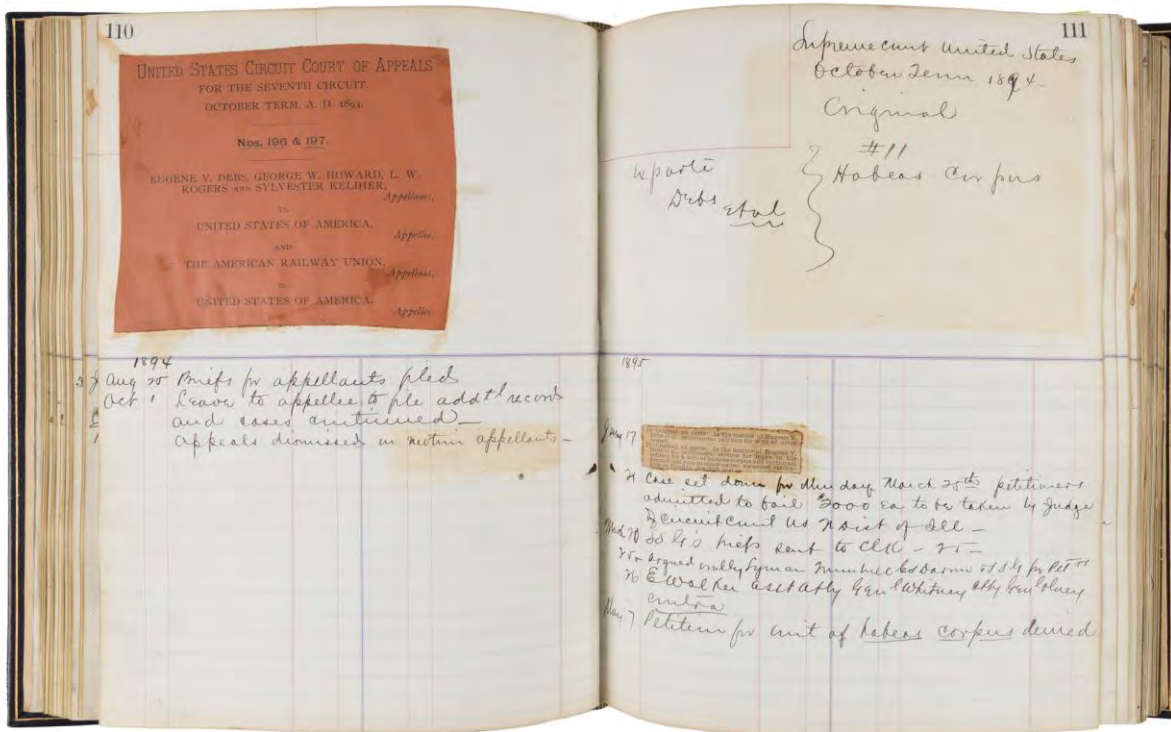 110
UNITED STATES CIRCUIT COURT OF APPEALS
FOR THE SEVENTH CIRCUIT.
OCTOBER TERM, A. D. 1893.
Nos. 196 & 197.
EUGENE V. DEBS, GEORGE W. HOWARD, L. W.
ROGERS AND SYLVESTER KELIHER,
Appellants,
vs.
UNITED STATES OF AMERICA,
Appellee,
AND
THE AMERICAN RAILWAY UNION,
Appellant,
vs.
UNITED STATES OF AMERICA,
Appellee.
1894
Aug 25 Briefs for appellants filed
Oct 1 Leave to appellee to file addtl records
and cases continued
Appeals dismissed on motion appellants
111
Supreme court United States
October Term 1894
Original
#11
Ex parte
Debs et al
Habeas Corpus
1895
Jany 17
21 Case set down for Monday March 25th petitioners
admitted to bail $2000 ea to be taken by Judge
of Circuit Court US N Dist of Ill
20 briefs sent to Clk - 25 -
25 argued orally Lyman for Petrs
26 E Walker asst atty Genl Whitney Atty Genl Olney
contra
May 7 Petition for writ of habeas corpus denied